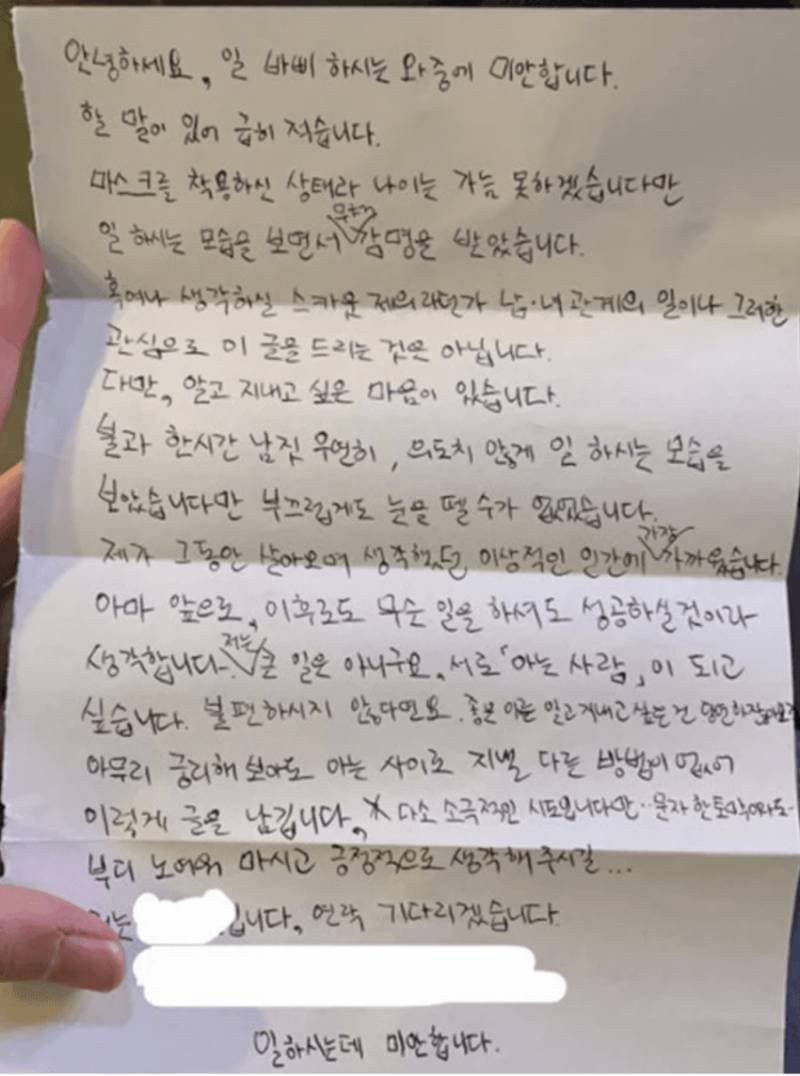 안녕하세요, 일 바삐 하시는 와중에 미안합니다.
할 말이 있어 급히 적습니다.
마스크를 착용하신 상태라 나이는 가늠 못하겠습니다만
일 하시는 모습을 보면서 무척 감명을 받았습니다.
혹여나 생각하실 스카웃 제의라던가 남·녀 관계의 일이나 그러한
관심으로 이 글을 드리는 것은 아닙니다.
다만, 알고 지내고 싶은 마음이 있습니다.
불과 한시간 남짓 우연히, 의도치 않게 일 하시는 모습을
보았습니다만 부끄럽게도 눈을 뗄 수가 없었습니다.
제가 그동안 살아오며 생각했던 이상적인 인간에 가장 가까웠습니다.
아마 앞으로, 이후로도 무슨 일을 하셔도 성공하실 것이라
생각합니다. 저는 큰 일은 아니구요, 서로 「아는 사람」이 되고
싶습니다. 불편하시지 않다면요. 좋은 이를 알고 지내고 싶은 건 당연하잖아요?
아무리 궁리해 보아도 아는 사이로 지낼 다른 방법이 없어
이렇게 글을 남깁니다, * 다소 소극적인 시도입니다만..
부디 노여워 마시고 긍정적으로 생각해 주시길...
입니다, 연락 기다리겠습니다
일하시는데 미안합니다.